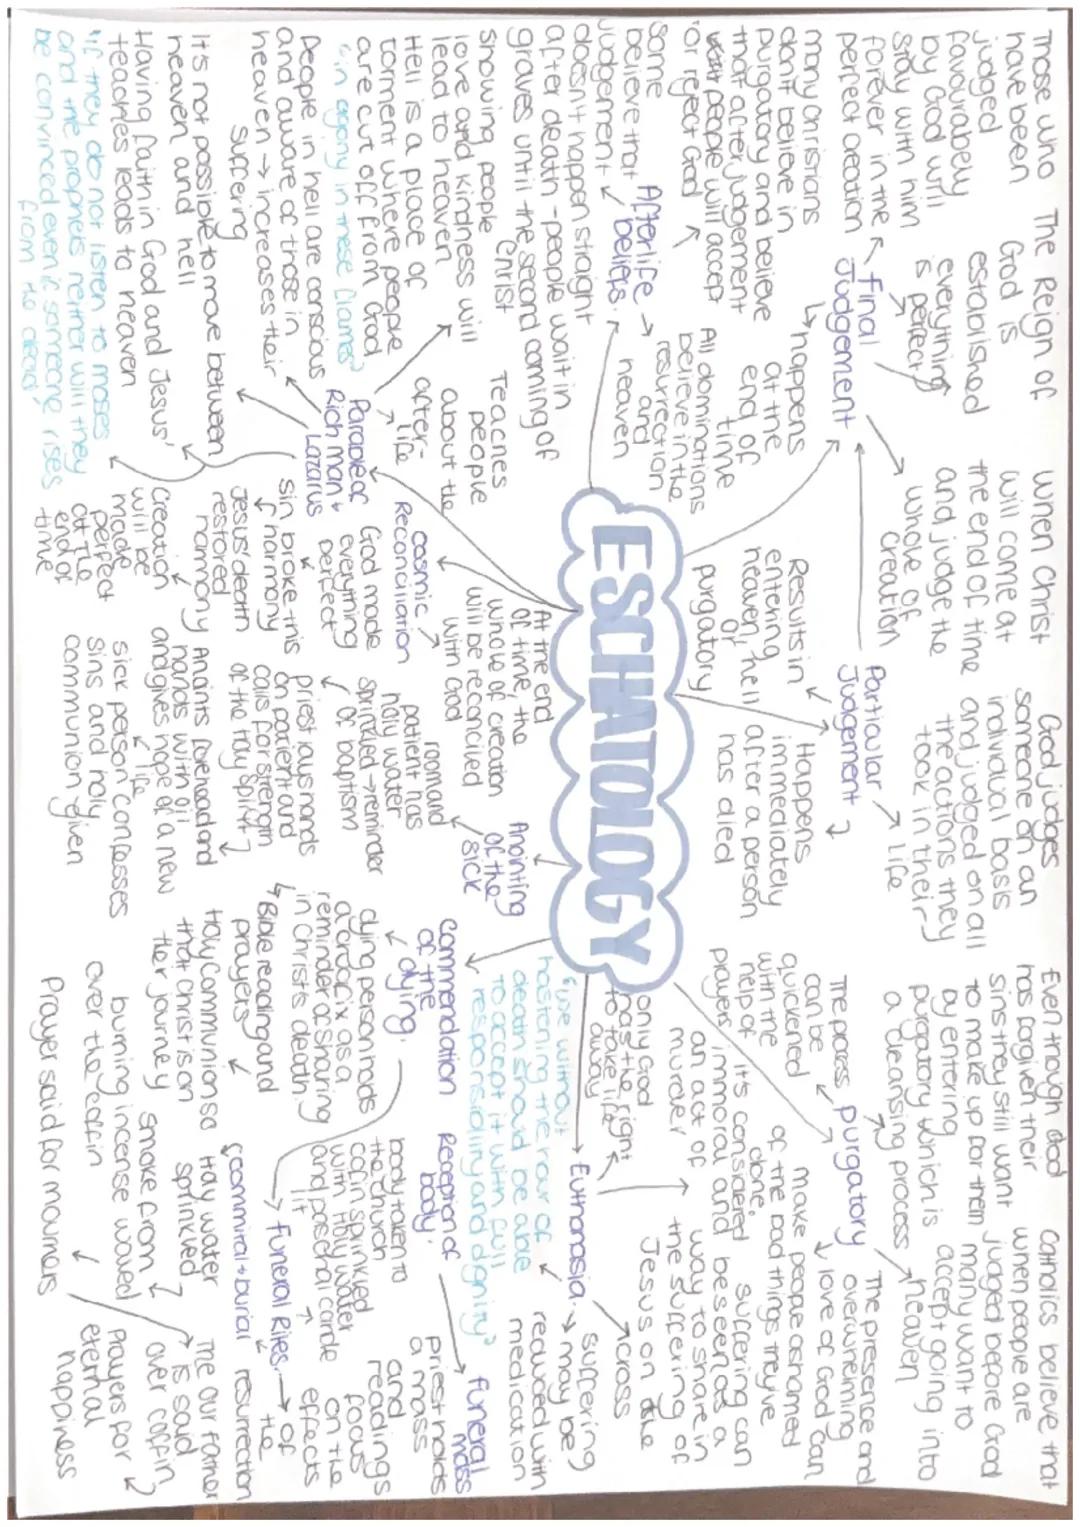 ESCHATOLOGY
Final
Judgement
happens
at the
end of
time
Those who
have been
judged
favourabely
by God will
stay with him
forever in the
perfect creation
The Reign of
God is
established
everything
is perfect
When Christ
will come at
the end of time
and judge the
whole of
creation
Particular
Judgement
God judges
someone on an
individual basis
and judged on all
the actions they
took in their
life
Happens
immediately
after a person
has died
Results in
entering
heaven, hell
or
purgatory
purgatory
Even though God
has forgiven their
sins they still want
to make up for them
by entering
purgatory which is
a cleansing process
Catholics believe that
when people are
judged before God
many want to
accept going into
heaven
The presence and
overwhelming
love of God can
make people ashamed
of the bad things they've
done.
The process
can be
quickened
with the
help of
prayers
Afterlife
beliefs
many christians
don't believe in
purgatory and believe
that after judgement
people will accept
or reject God
Some
believe that
judgement
doesn't happen straight
after death - people wait in
graves until the second coming of
Christ
All dominations
believe in the
resurrection
and
heaven
Parable of
Rich man +
Lazarus
Teaches
people
about the
after-
life
showing people
love and kindness will
lead to heaven
Hell is a place of
torment where people
are cut off from God
"in agony in these flames"
people in hell are conscious
and aware of those in
heaven → increases their
suffering
It's not possible to move between
heaven and hell
Having faith in God and Jesus'
teaches leads to heaven
"if they do not listen to moses
and the prophets neither will they
be convinced even if someone rises
from the dead"
cosmic
Reconciliation
At the end
of time, the
whole of creation
will be reconciled
with God
God made
everything
perfect
Sin broke this
harmony
Jesus' death
restored
harmony
Creation
will be
made
perfect
at the
end of
time
Anointing
of the
sick
room and
patient has
holy water
sprinkled → reminder
of baptism
priest lays hands
on patient and
calls for strength
of the Holy Spirit
Anoints forehead and
hands with oil
and gives hope of a new
life
sick person confesses
sins and holy
communion given
Commendation
of the
dying
dying person holds
a crucifix as a
reminder of sharing
in Christ's death
Bible reading and
prayers
Holy Communion so
that Christ is on
their journey
Euthanasia
only God
has the right
to take life
away
It's considered
immoral and
an act of
murder
suffering can
be seen as a
way to share in
the suffering of
Jesus on the
cross
suffering
may be
reduced with
medication
"use without
hastening the hour of
death should be able
to accept it with full
responsibility and dignity"
Funeral Rites
Reception of
body
body taken to
the church
coffin sprinkled
with Holy water
and paschal candle
lit
funeral
mass
priest holds
a mass
and
readings
focus
on the
effects
of
the
resurrection
commiral + burial
Holy water
sprinkled
Smoke from
burning incense waved
over the coffin
Prayer said for mourners
The our father
is said
over coffin
Prayers for
eternal
happiness